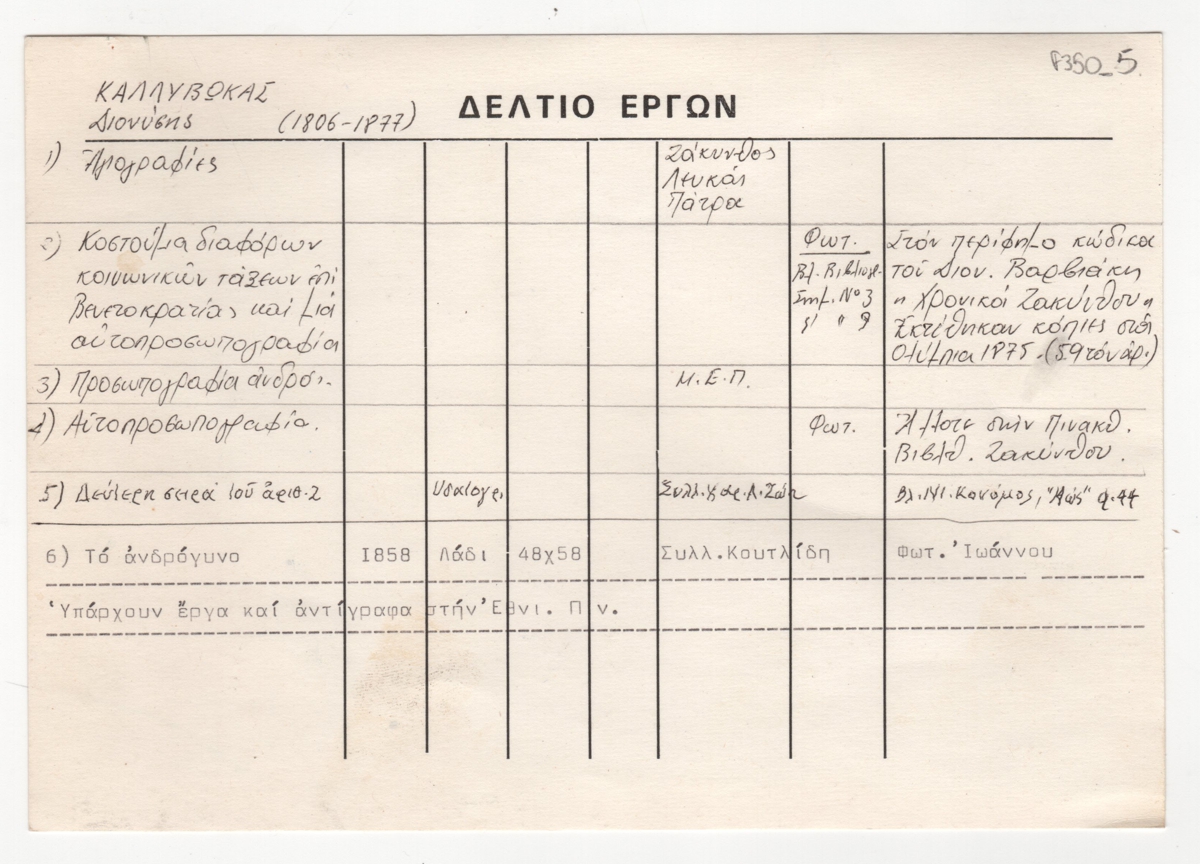 F350_5
ΚΑΛΛΥΒΩΚΑΣ
Διονύσης (1806-1877)
ΔΕΛΤΙΟ ΕΡΓΩΝ
1) Ἁγιογραφίες
Ζάκυνθος
Λευκάς
Πάτρα
2) Κοστούμια διαφόρων
κοινωνικῶν τάξεων ἐπί
Βενετοκρατίας καί μιά
αὐτοπροσωπογραφία
Φωτ.
Βλ. Βιβλιογρ.
Σημ. Νο 3
ς' " 9
Στόν περίφημο κώδικα
τοῦ Διον. Βαρβιάκη
"Χρονικόν Ζακύνθου"
Ἐκτέθηκαν κόπιες στά
Ολύμπια 1875. (59 τόν ἀρ.)
3) Προσωπογραφία ἀνδρός.
Μ.Ε.Π.
4) Αὐτοπροσωπογραφία.
Φωτ.
Ἄλλοτε στήν Πινακθ.
Βιβλθ. Ζακύνθου.
5) Δεύτερη σειρά τοῦ ἀριθ. 2
Υδατογρ.
Συλλ. Χαρ. Λ. Ζώη
Βλ. Ντ. Κονόμος, "Ἠώς" φ. 44
6) Τό ἀνδρόγυνο
Ι858
Λάδι
48χ58
Συλλ.Κουτλίδη
Φωτ.'Ιωάννου
'Υπάρχουν ἔργα καί ἀντίγραφα στήν'Εθνι. Πιν.